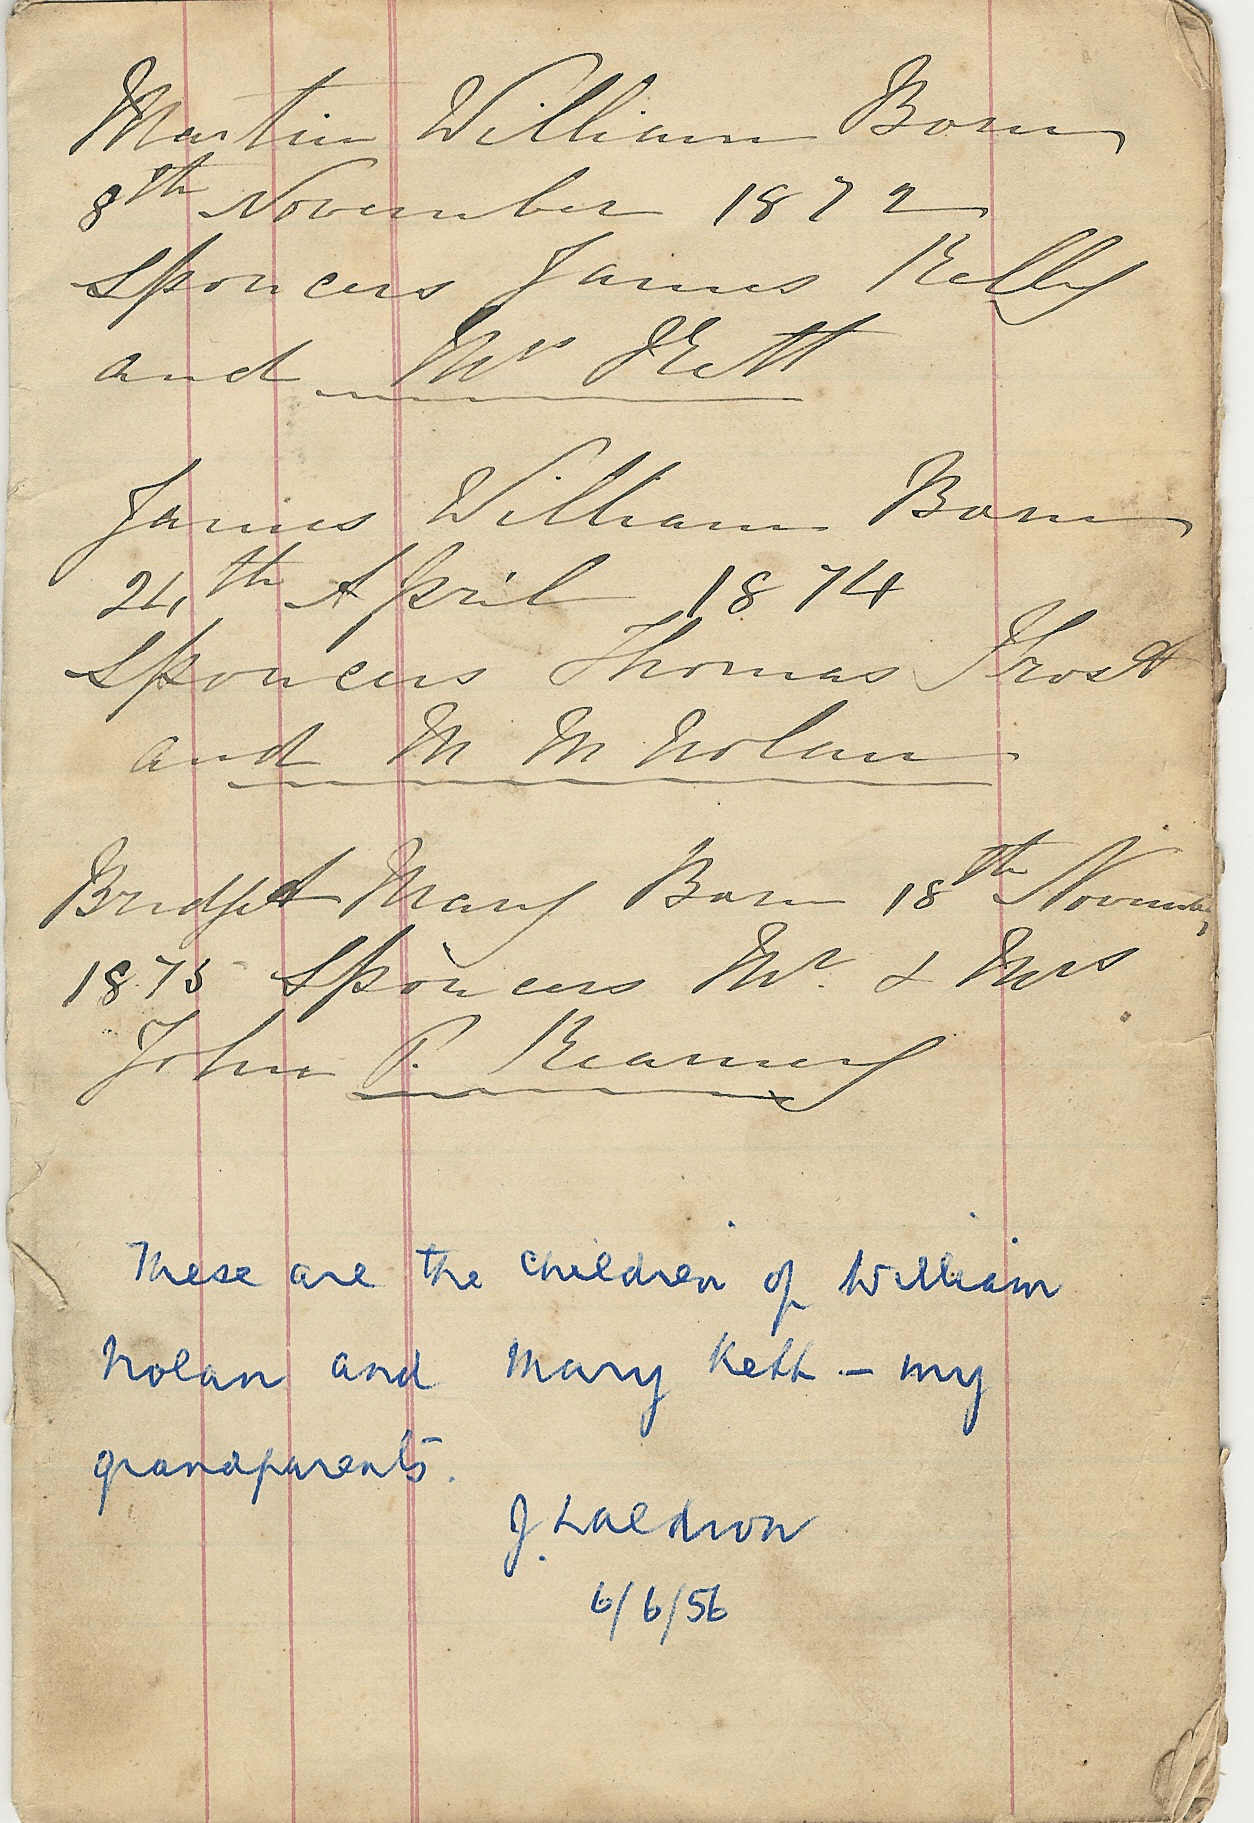 Martin William Born
8th November 1872
Sponcers James Kelly
and Mrs Kett
James William Born
24th April 1874
Sponcers Thomas Frost
and M M Nolan
Bridget Mary Born 18th November
1875 Sponcers Mr. & Mrs
John P. Kearney
These are the children of William
Nolan and Mary Kett – my
grandparents.
J. Waldron
6/6/56